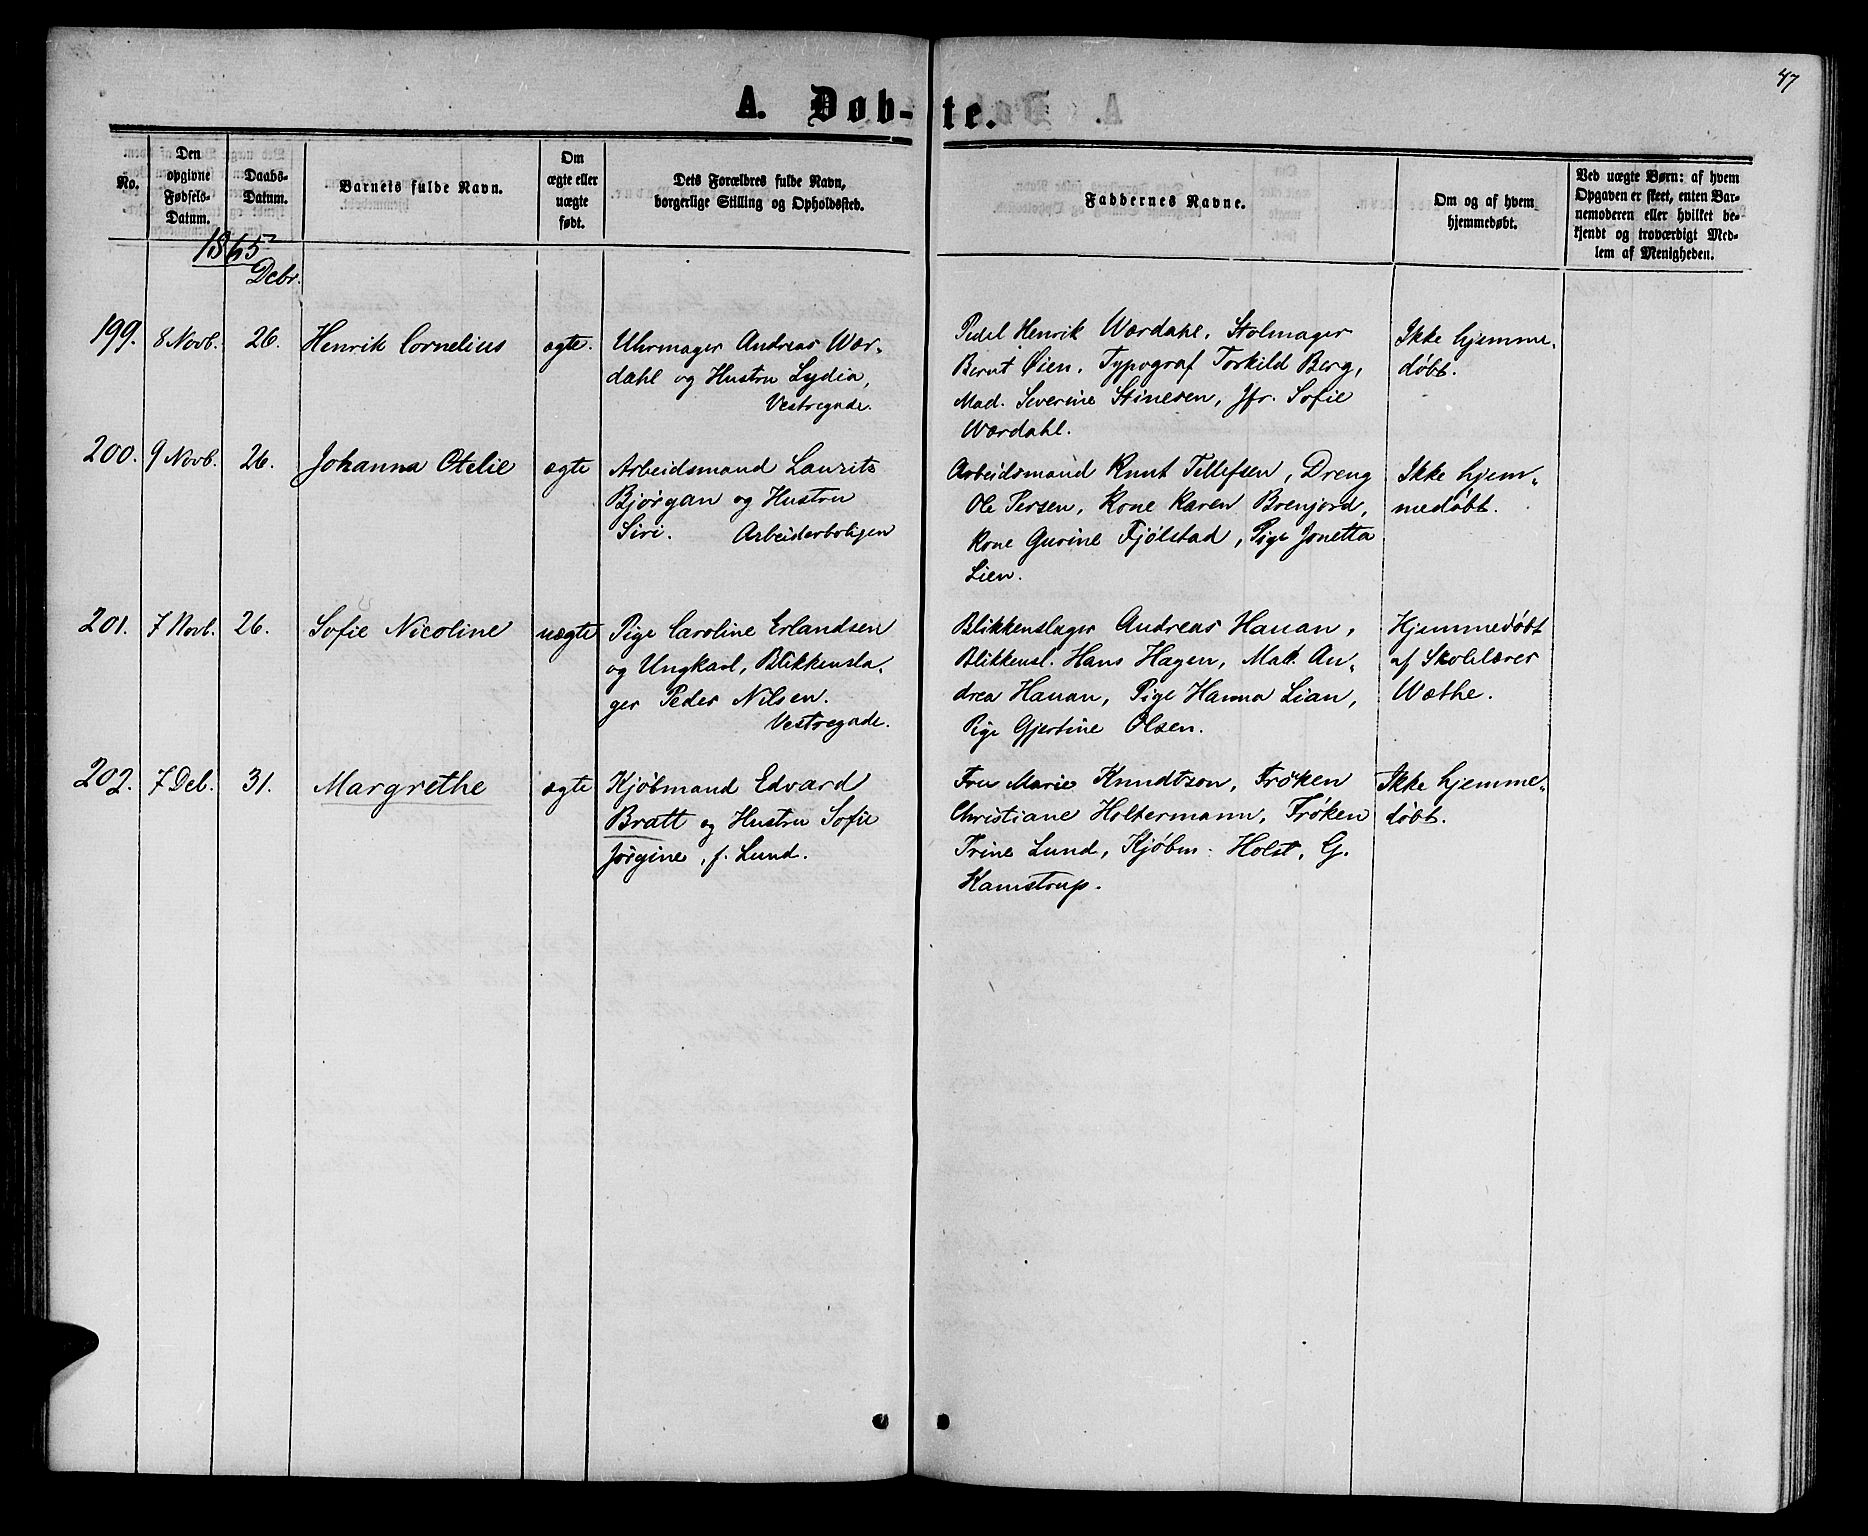 47
A. Døb-te.
No.
Den
opgivne
Fødsels-
Datum.
Daabs-
Datum.
Barnets fulde Navn.
Om
ægte eller
uægte
født.
Dets Forældres fulde Navn,
borgerlige Stilling og Opholdssted.
Faddernes Navne.
Om og af hvem
hjemmedøbt.
Ved uægte Børn: af hvem
Opgaven er skeet, enten Bar-
nemoderen eller hvilket be-
kjendt og troværdigt Med-
lem af Menigheden.
1865
Debr.
199. 8 Novb. 26. Henrik Cornelius ægte.
Uhrmager Andreas Wær-
dahl og Hustru Lydia,
Vestregade.
Pedel Henrik Wærdahl, Stolmager
Bernt Øien, Typograf Torkild Berg,
Mad. Severine Stinesen, Jfr. Sofie
Wærdahl.
Ikke hjemme-
døbt.
200. 9 Novb. 26. Johanna Otelie ægte
Arbeidsmand Laurits
Bjørgan og Hustru
Siri. Arbeiderboligen
Arbeidsmand Knut Tellefsen, Dreng
Ole Persen, Kone Karen Brenjord,
Kone Gurine Fjølstad, Pige Jonetta
Lien.
Ikke hjem-
medøbt.
201. 7 Novb. 26. Sofie Nicoline uægte
Pige Caroline Erlandsen
og Ungkarl, Blikkensla-
ger Peder Nilsen.
Vestregade.
Blikkenslager Andreas Hauan,
Blikkensl. Hans Hagen, Mad. An-
drea Hauan, Pige Hanna Lian,
Pige Gjertine Olsen.
Hjemmedøbt
af Skolelærer
Wæthe.
202. 7 Deb. 31. Margrethe ægte
Kjøbmand Edvard
Bratt og Hustru Sofie
Jørgine, f. Lund.
Fru Marie Knudtson, Frøken
Christiane Holtermann, Frøken
Trine Lund, Kjøbm. Holst, G.
Kamstrup.
Ikke hjemme-
døbt.